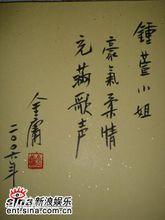 鍾萱小姐
豪氣柔情
充滿歌声
金庸
二〇〇六年
sina 新浪娱乐
ent.sina.com.cn